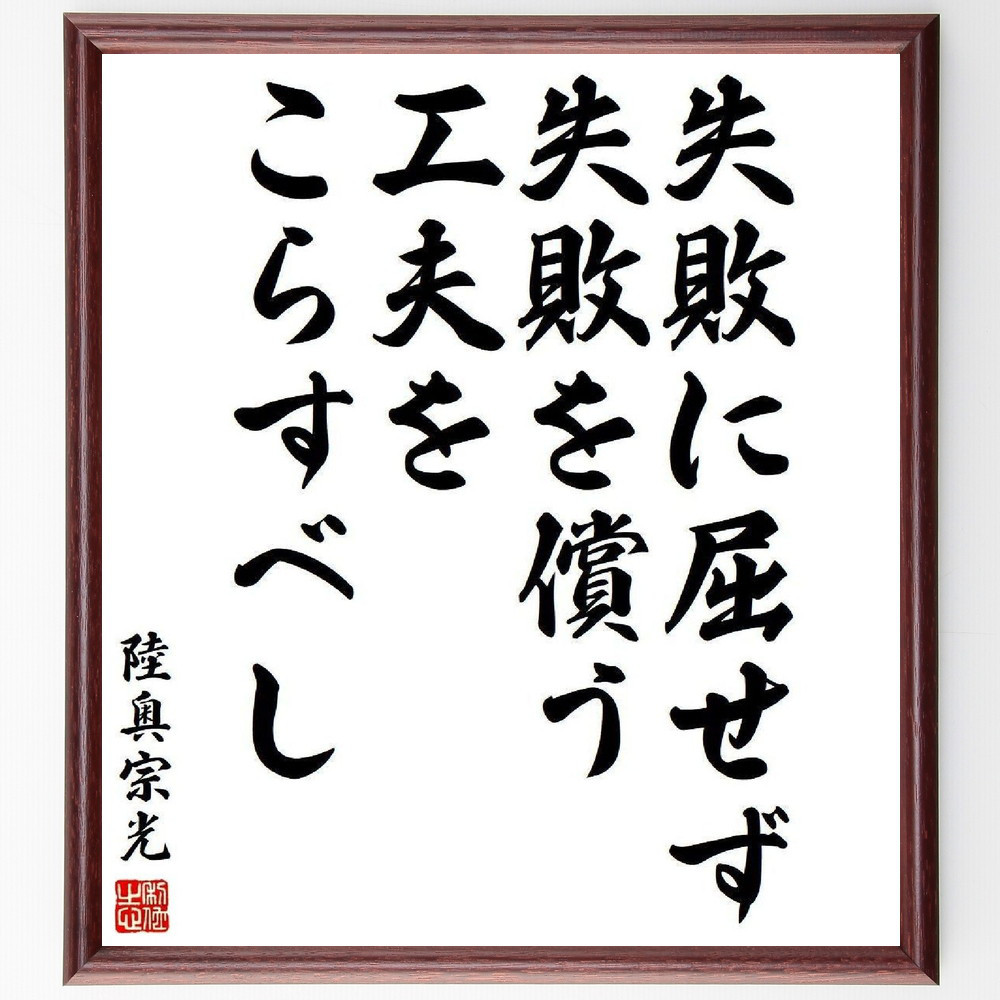 失敗に屈せず
失敗を償う
工夫を
こらすべし
陸奥宗光